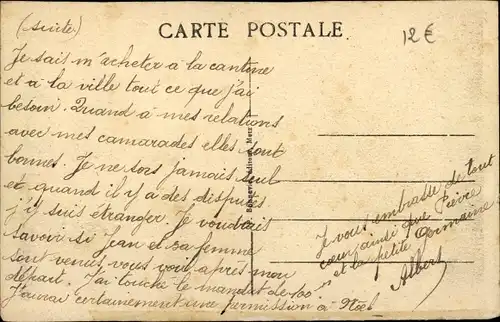 (suite)
CARTE POSTALE
12€
Je sais m'acheter à la cantine
et à la ville tout ce que j'ai
besoin. Quand à mes relations
avec mes camarades elles sont
bonnes. Je ne sors jamais seul
et quand il y a des disputes
j'y suis étranger. Je voudrais
savoir si Jean et sa femme
sont venus vous voir, après mon
départ. J'ai touché le mandat de 100 frs
J'aurai certainement une permission à Noël
Metz
Je vous embrasse de tout
cœur ainsi que Pierre
et la petite Germaine
Albert